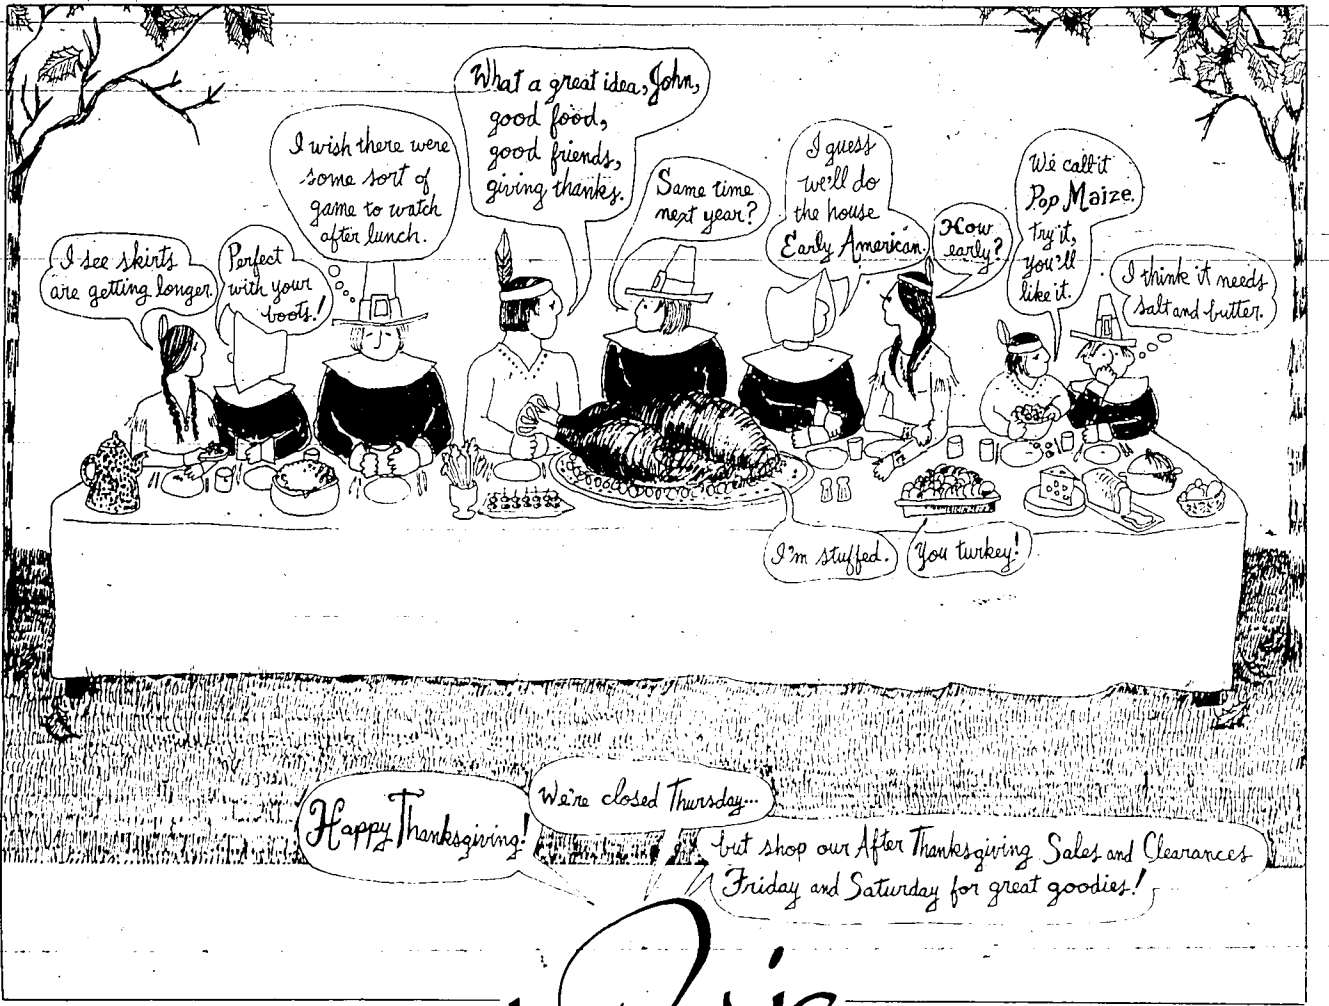 I see skirts
are getting longer.
Perfect
with your
boots!
I wish there were
some sort of
game to watch
after lunch.
What a great idea, John,
good food,
good friends,
giving thanks.
Same time
next year?
I guess
we'll do
the house
Early American.
How
early?
We call it
Pop Maize.
Try it,
you'll
like it.
I think it needs
salt and butter.
I'm stuffed.
You turkey!
Happy Thanksgiving!
We're closed Thursday...
but shop our After Thanksgiving Sales and Clearances
Friday and Saturday for great goodies!